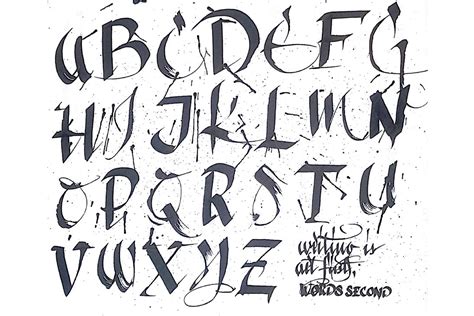 A B C D E F G
H I J K L M N
O P Q R S T U
V W X Y Z
writing is
art first,
WORDS SECOND